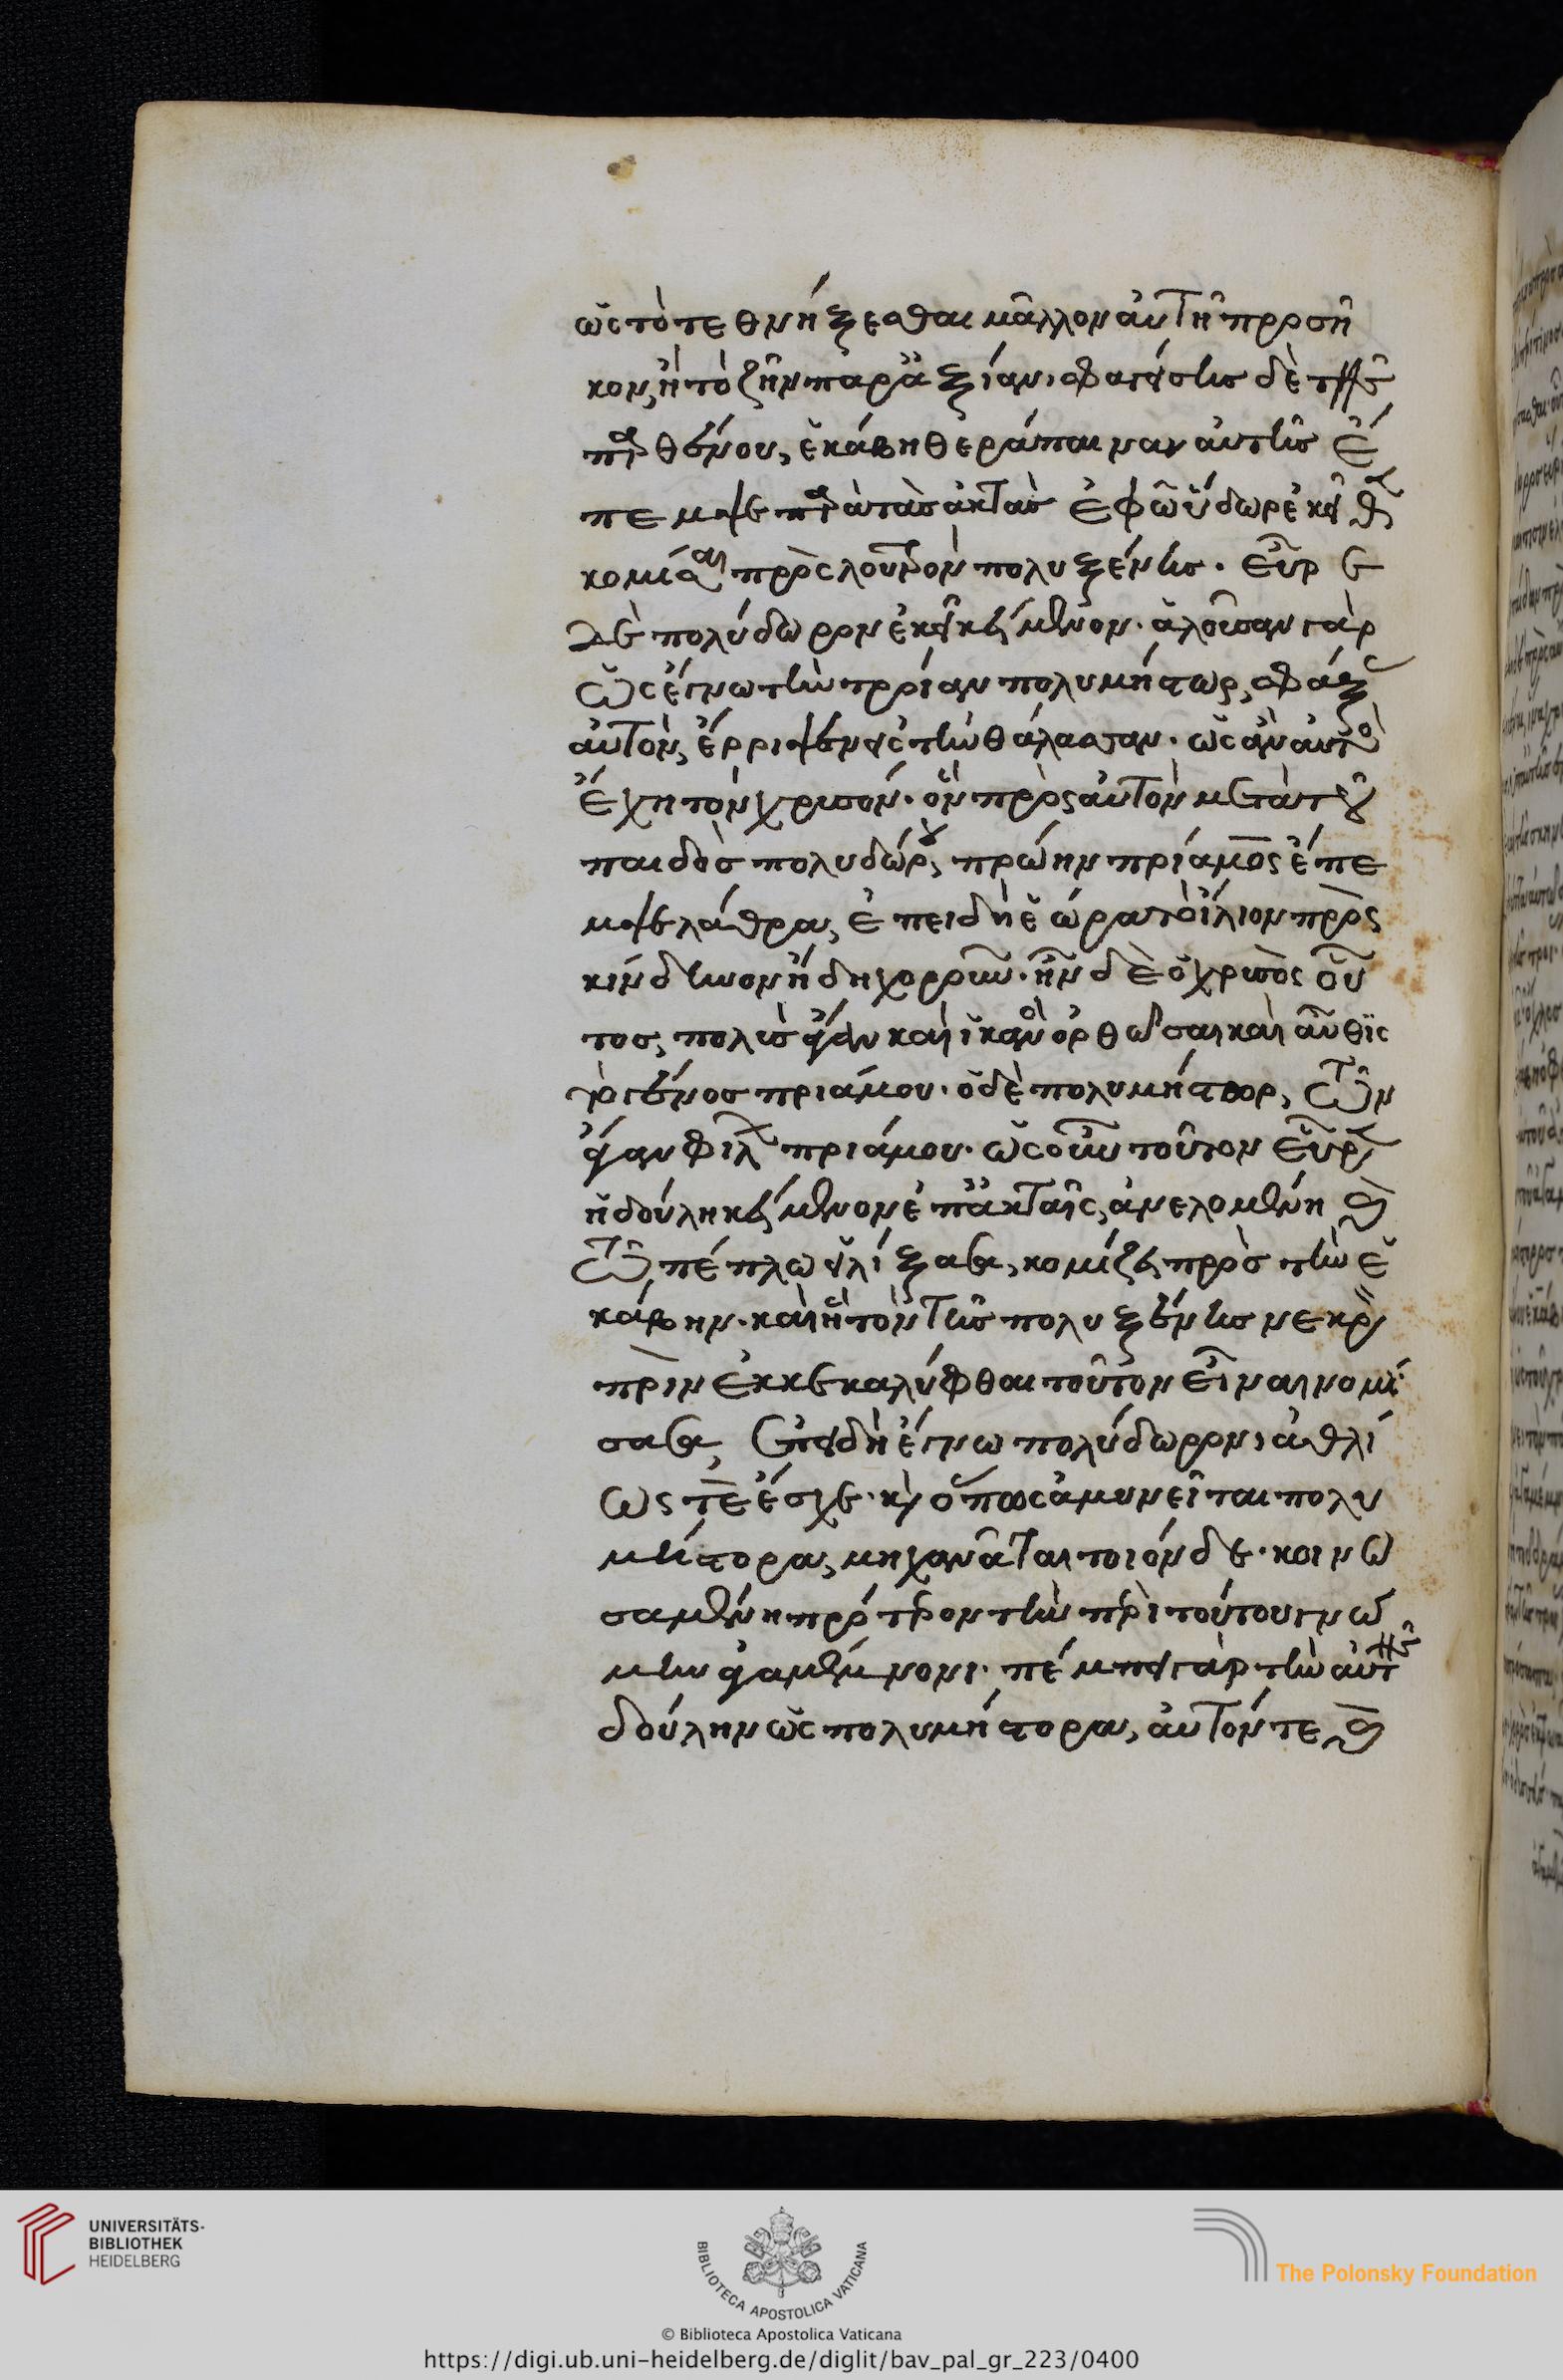 ὡς τὸ τεθνήξεσθαι μᾶλλον αὐτῇ προσῆ
κον, ἢ τὸ ζῆν παρ' ἀξίαν, σφαγείσης δὲ τῆς
παρθένου, ἑκάβη θεράπαιναν αὐτῆς ἔ
πεμψε παρὰ τὰς ἀκτὰς ἐφ' ᾧ ὕδωρ ἐκεῖθεν
κομίσαι πρὸς λουτρὸν πολυξένης. εὗρε
δὲ πολύδωρον ἐκεῖ κείμενον. ἁλοῦσαν γὰρ
ὡς ἔγνω τὴν τροίαν πολυμήστωρ, σφάξας
αὐτὸν, ἔρριψεν εἰς τὴν θάλασσαν. ὡς ἂν αὐτὸς
ἔχῃ τὸν χρυσόν. ὃν πρὸς αὐτὸν μετὰ τοῦ
παιδὸς πολυδώρου, πρώην πρίαμος ἔπε
μψε λάθρα, ἐπειδὴ ἑώρα τὸ ἴλιον πρὸς
κίνδυνον ἤδη χοροῦν. ἦν δὲ ὁ χρυσὸς οὗ
τος, πολὺς ἄγαν καὶ ἱκανὸς ὀρθῶσαι καὶ αὖθις
τὸ γένος πριάμου. ὁ δὲ πολυμήστωρ, τῶν
ἄγαν φίλων πριάμου. ὡς οὖν τοῦτον εὗρεν
ἡ δούλη κείμενον ἐπ' ἀκταῖς, ἀνελομένη καὶ
τῷ πέπλῳ εἱλίξασα, κομίζει πρὸς τὴν ἑ
κάβην. καὶ ἣ τὸν τῆς πολυξένης νεκρὸν
πρὶν ἐκκεκαλύφθαι τοῦτον εἶναι νομί
σασα, ἐπειδὴ ἔγνω πολύδωρον, ἀθλί
ως τε ἔσχε. καὶ ὅπως ἀμυνεῖται πολυ
μήστορα, μηχανᾶται τοιόνδε. κοινω
σαμένη πρότερον τὴν περὶ τούτου γνώ
μην ἀγαμέμνονι. πέμπει γὰρ τὴν αὐτῆς
δούλην ὡς πολυμήστορα, αὐτόν τε καὶ
UNIVERSITÄTS-
BIBLIOTHEK
HEIDELBERG
BIBLIOTECA APOSTOLICA VATICANA
The Polonsky Foundation
© Biblioteca Apostolica Vaticana
https://digi.ub.uni-heidelberg.de/diglit/bav_pal_gr_223/0400